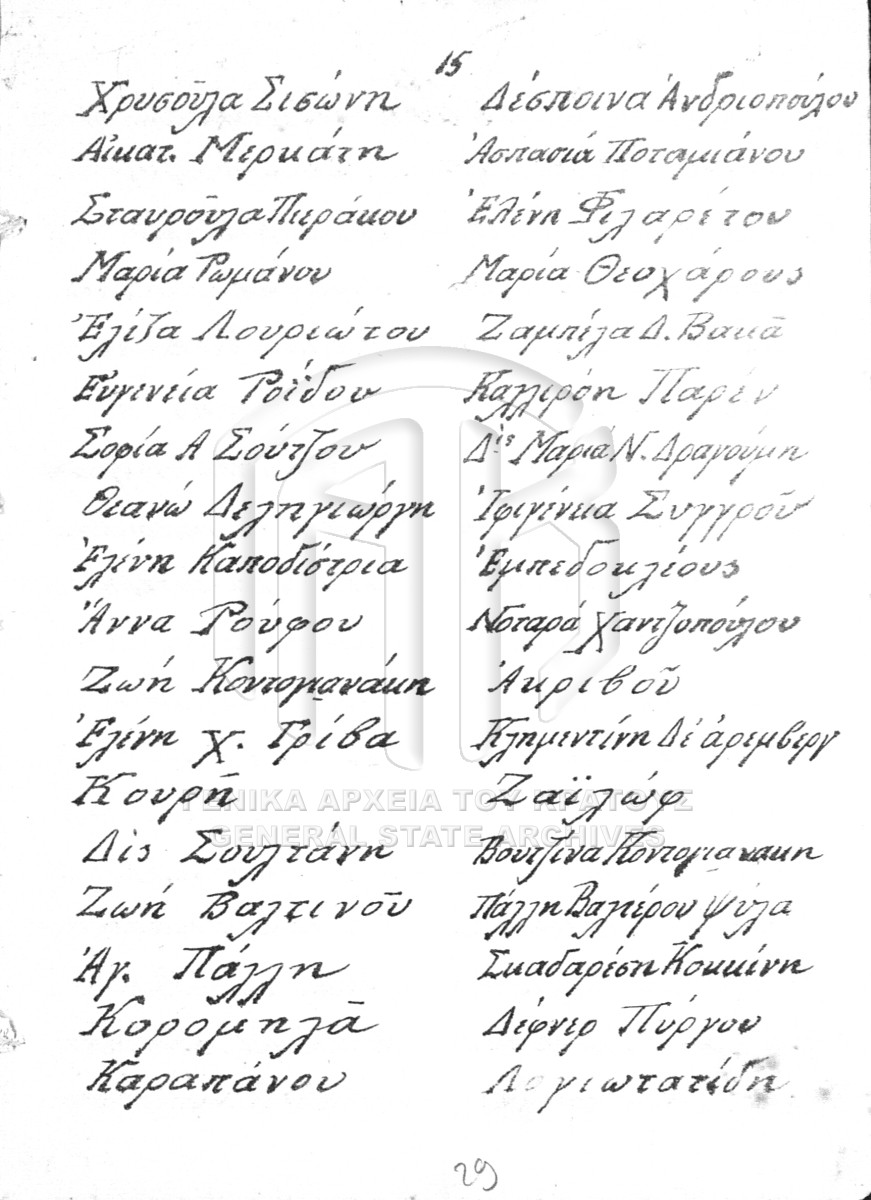 15
Χρυσοῦλα Σισώνη
Αἰκατ. Μερκάτη
Σταυροῦλα Πιεράκου
Μαρία Ρωμάνου
Ἐλίζα Λουριώτου
Εὐγενεία Ροΐδου
Σοφία Α Σούτζου
Θεανώ Δεληγιώργη
Ἑλένη Καποδίστρια
Ἄννα Ρούφου
Ζωή Κοντογιανάκη
Ἑλένη Χ. Γρίβα
Κουρῆ
Δὶς Σουλτάνη
Ζωή Βαλτινοῦ
Ἁγ. Πάλλη
Κορομηλᾶ
Καραπάνου
Δέσποινα Ἀνδριοπούλου
Ἀσπασιά Ποταμιάνου
Ἑλένη Φιλαρέτου
Μαρία Θεοχάρους
Ζαμπέλα Δ. Βακᾶ
Καλλιρόη Παρέν
Δὶς Μαριά Ν. Δραγούμη
Ἰφιγένεια Συγγροῦ
Ἐμπεδοκλέους
Νοταρά Χαντζοπούλου
Ἀκριβοῦ
Κλημεντίνη Δέ ἀρεμβεργ
Ζαϊλώφ
Βουτζίνα Κοντογιανακη
Πάλλη Βαλιέρου Ψύλα
Σκαδαρέση Κοκκίνη
Δέφνερ Πύργου
Λογιωτατίδη
ΓΕΝΙΚΑ ΑΡΧΕΙΑ ΤΟΥ ΚΡΑΤΟΥΣ
GENERAL STATE ARCHIVES
29